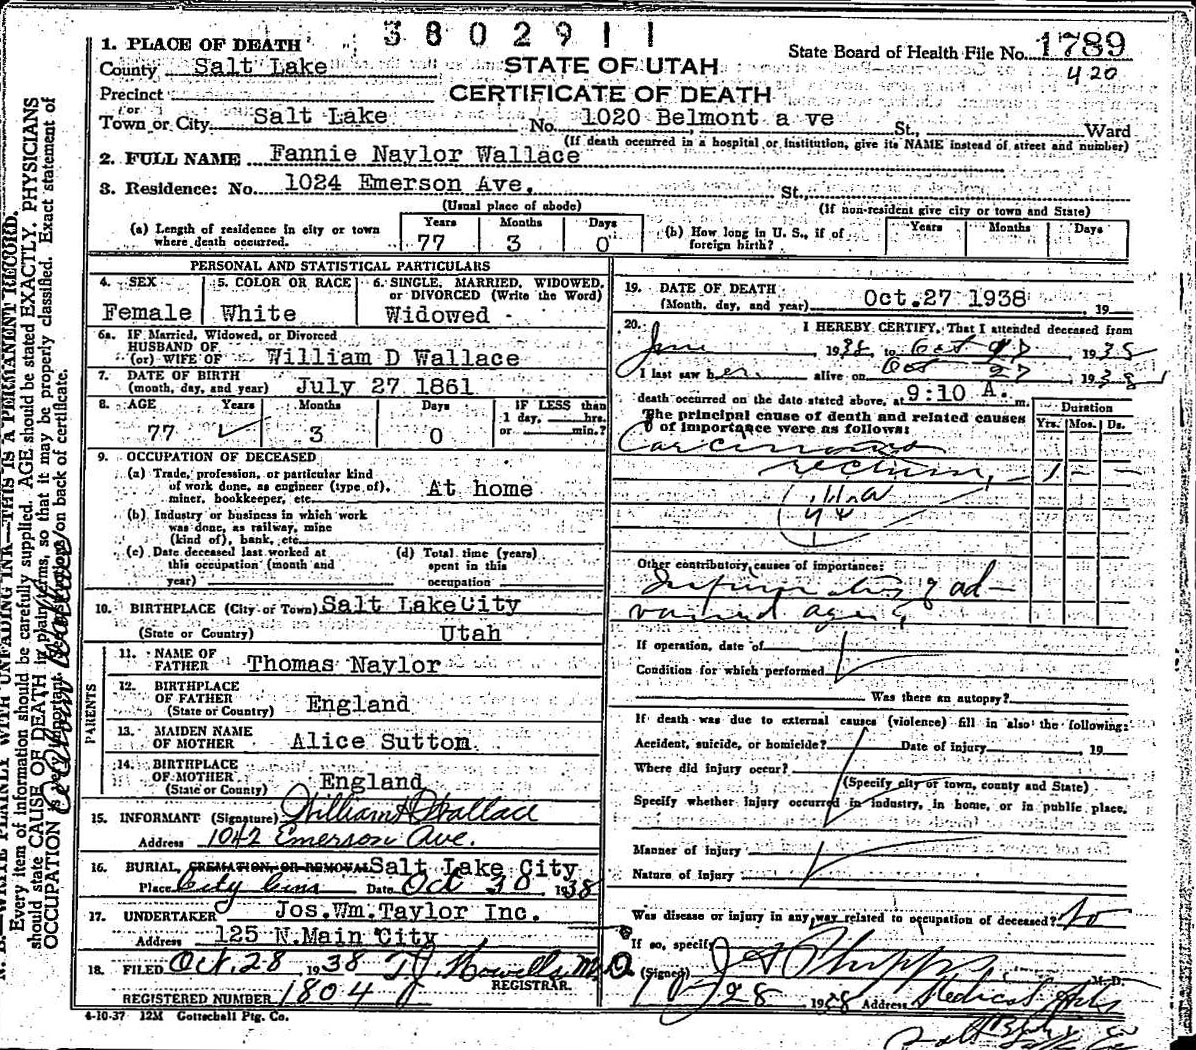 3802911
1. PLACE OF DEATH
State Board of Health File No. 1789
County Salt Lake
STATE OF UTAH
420
Precinct
CERTIFICATE OF DEATH
or
Town or City Salt Lake No. 1020 Belmont a ve St., Ward
(If death occurred in a hospital or institution, give its NAME instead of street and number)
2. FULL NAME Fannie Naylor Wallace
3. Residence: No. 1024 Emerson Ave. St.,
(Usual place of abode) (If non-resident give city or town and State)
(a) Length of residence in city or town where death occurred. Years 77 Months 3 Days 0
(b) How long in U. S., if of foreign birth? Years Months Days
PERSONAL AND STATISTICAL PARTICULARS
4. SEX 5. COLOR OR RACE 6. SINGLE, MARRIED, WIDOWED, or DIVORCED (Write the Word)
Female White Widowed
6a. IF Married, Widowed, or Divorced
HUSBAND OF
(or) WIFE OF William D Wallace
7. DATE OF BIRTH
(month, day, and year) July 27 1861
8. AGE Years Months Days IF LESS than 1 day, hrs. or min.?
77 3 0
9. OCCUPATION OF DECEASED
(a) Trade, profession, or particular kind
of work done, as engineer (type of),
miner, bookkeeper, etc. At home
(b) Industry or business in which work
was done, as railway, mine
(kind of), bank, etc.
(c) Date deceased last worked at
this occupation (month and
year)
(d) Total time (years)
spent in this
occupation
10. BIRTHPLACE (City or Town) Salt LakeCity
(State or Country) Utah
PARENTS
11. NAME OF
FATHER Thomas Naylor
12. BIRTHPLACE
OF FATHER
(State or Country) England
13. MAIDEN NAME
OF MOTHER Alice Sutton
14. BIRTHPLACE
OF MOTHER
(State or Country) England
15. INFORMANT (Signature) William D Wallace
Address 1042 Emerson Ave.
16. BURIAL, CREMATION, OR REMOVAL Salt Lake City
Place City Date Oct 30 1938
17. UNDERTAKER Jos.Wm.Taylor Inc.
Address 125 N.Main City
18. FILED Oct. 28 1938 T J Howells M.D.
REGISTRAR.
REGISTERED NUMBER 1804
4-10-37 12M Gottschall Ptg. Co.
19. DATE OF DEATH
(Month, day, and year) Oct.27 1938 , 19
20. I HEREBY CERTIFY, That I attended deceased from
June 1938, to Oct 27 1938
I last saw her alive on Oct 27 1938
death occurred on the date stated above, at 9:10 A. m.
The principal cause of death and related causes
of importance were as follows:
Duration
Yrs. Mos. Ds.
Carcinoma
rectum, 1 - -
Other contributory causes of importance:
Infirmities of ad-
vanced age
If operation, date of
Condition for which performed
Was there an autopsy?
If death was due to external causes (violence) fill in also the following:
Accident, suicide, or homicide? Date of injury , 19
Where did injury occur?
(Specify city or town, county and State)
Specify whether injury occurred in industry, in home, or in public place.
Manner of injury
Nature of injury
Was disease or injury in any way related to occupation of deceased? No
If so, specify
(Signed) M. D.
10-28 1938 Address Medical Arts
N. B.—WRITE PLAINLY WITH UNFADING INK—THIS IS A PERMANENT RECORD.
Every item of information should be carefully supplied. AGE should be stated EXACTLY. PHYSICIANS
should state CAUSE OF DEATH in plain terms, so that it may be properly classified. Exact statement of
OCCUPATION is very important. on back of certificate.